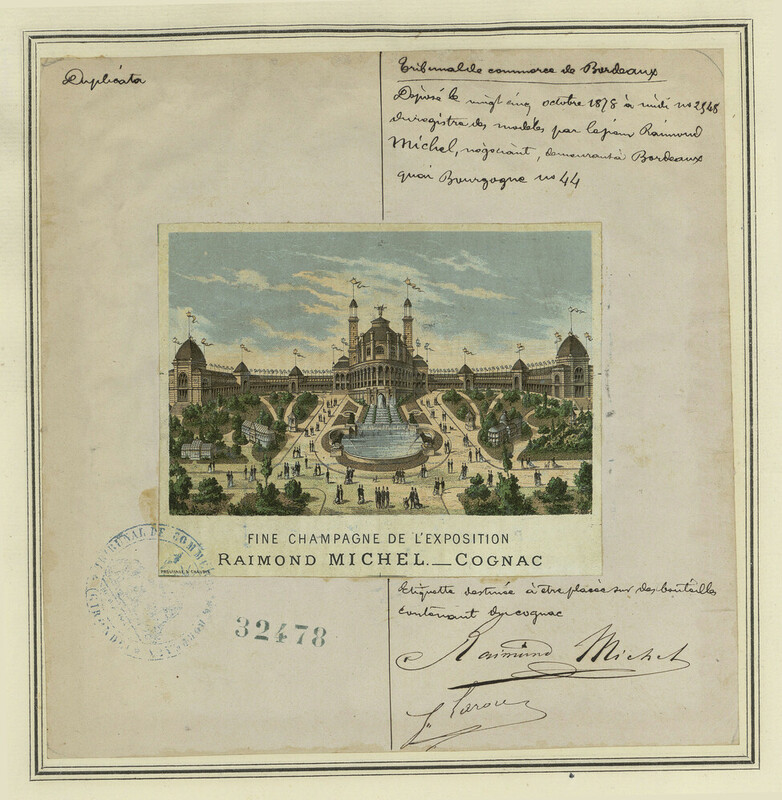 Duplicata
Tribunal de commerce de Bordeaux
Déposé le vingt cinq octobre 1878 à midi no 2548
du registre des modèles par le sieur Raimond
Michel, négociant, demeurant à Bordeaux
quai Bourgogne no 44
FINE CHAMPAGNE DE L'EXPOSITION
RAIMOND MICHEL._COGNAC
TRIBUNAL DE COMMERCE
32478
Etiquette destinée à être placée sur des bouteilles
contenant du cognac
Raimond Michel